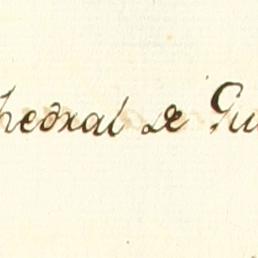 hedral de Gu